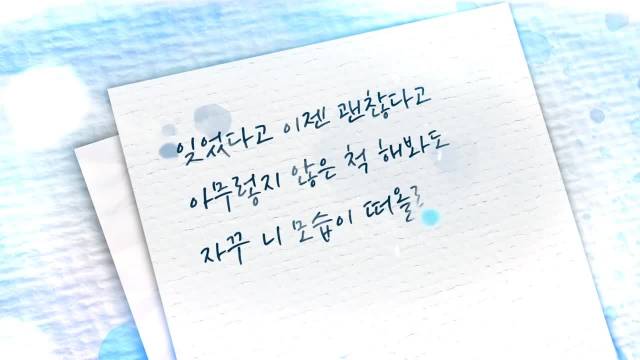 잊었다고 이젠 괜찮다고
아무렇지 않은 척 해봐도
자꾸 니 모습이